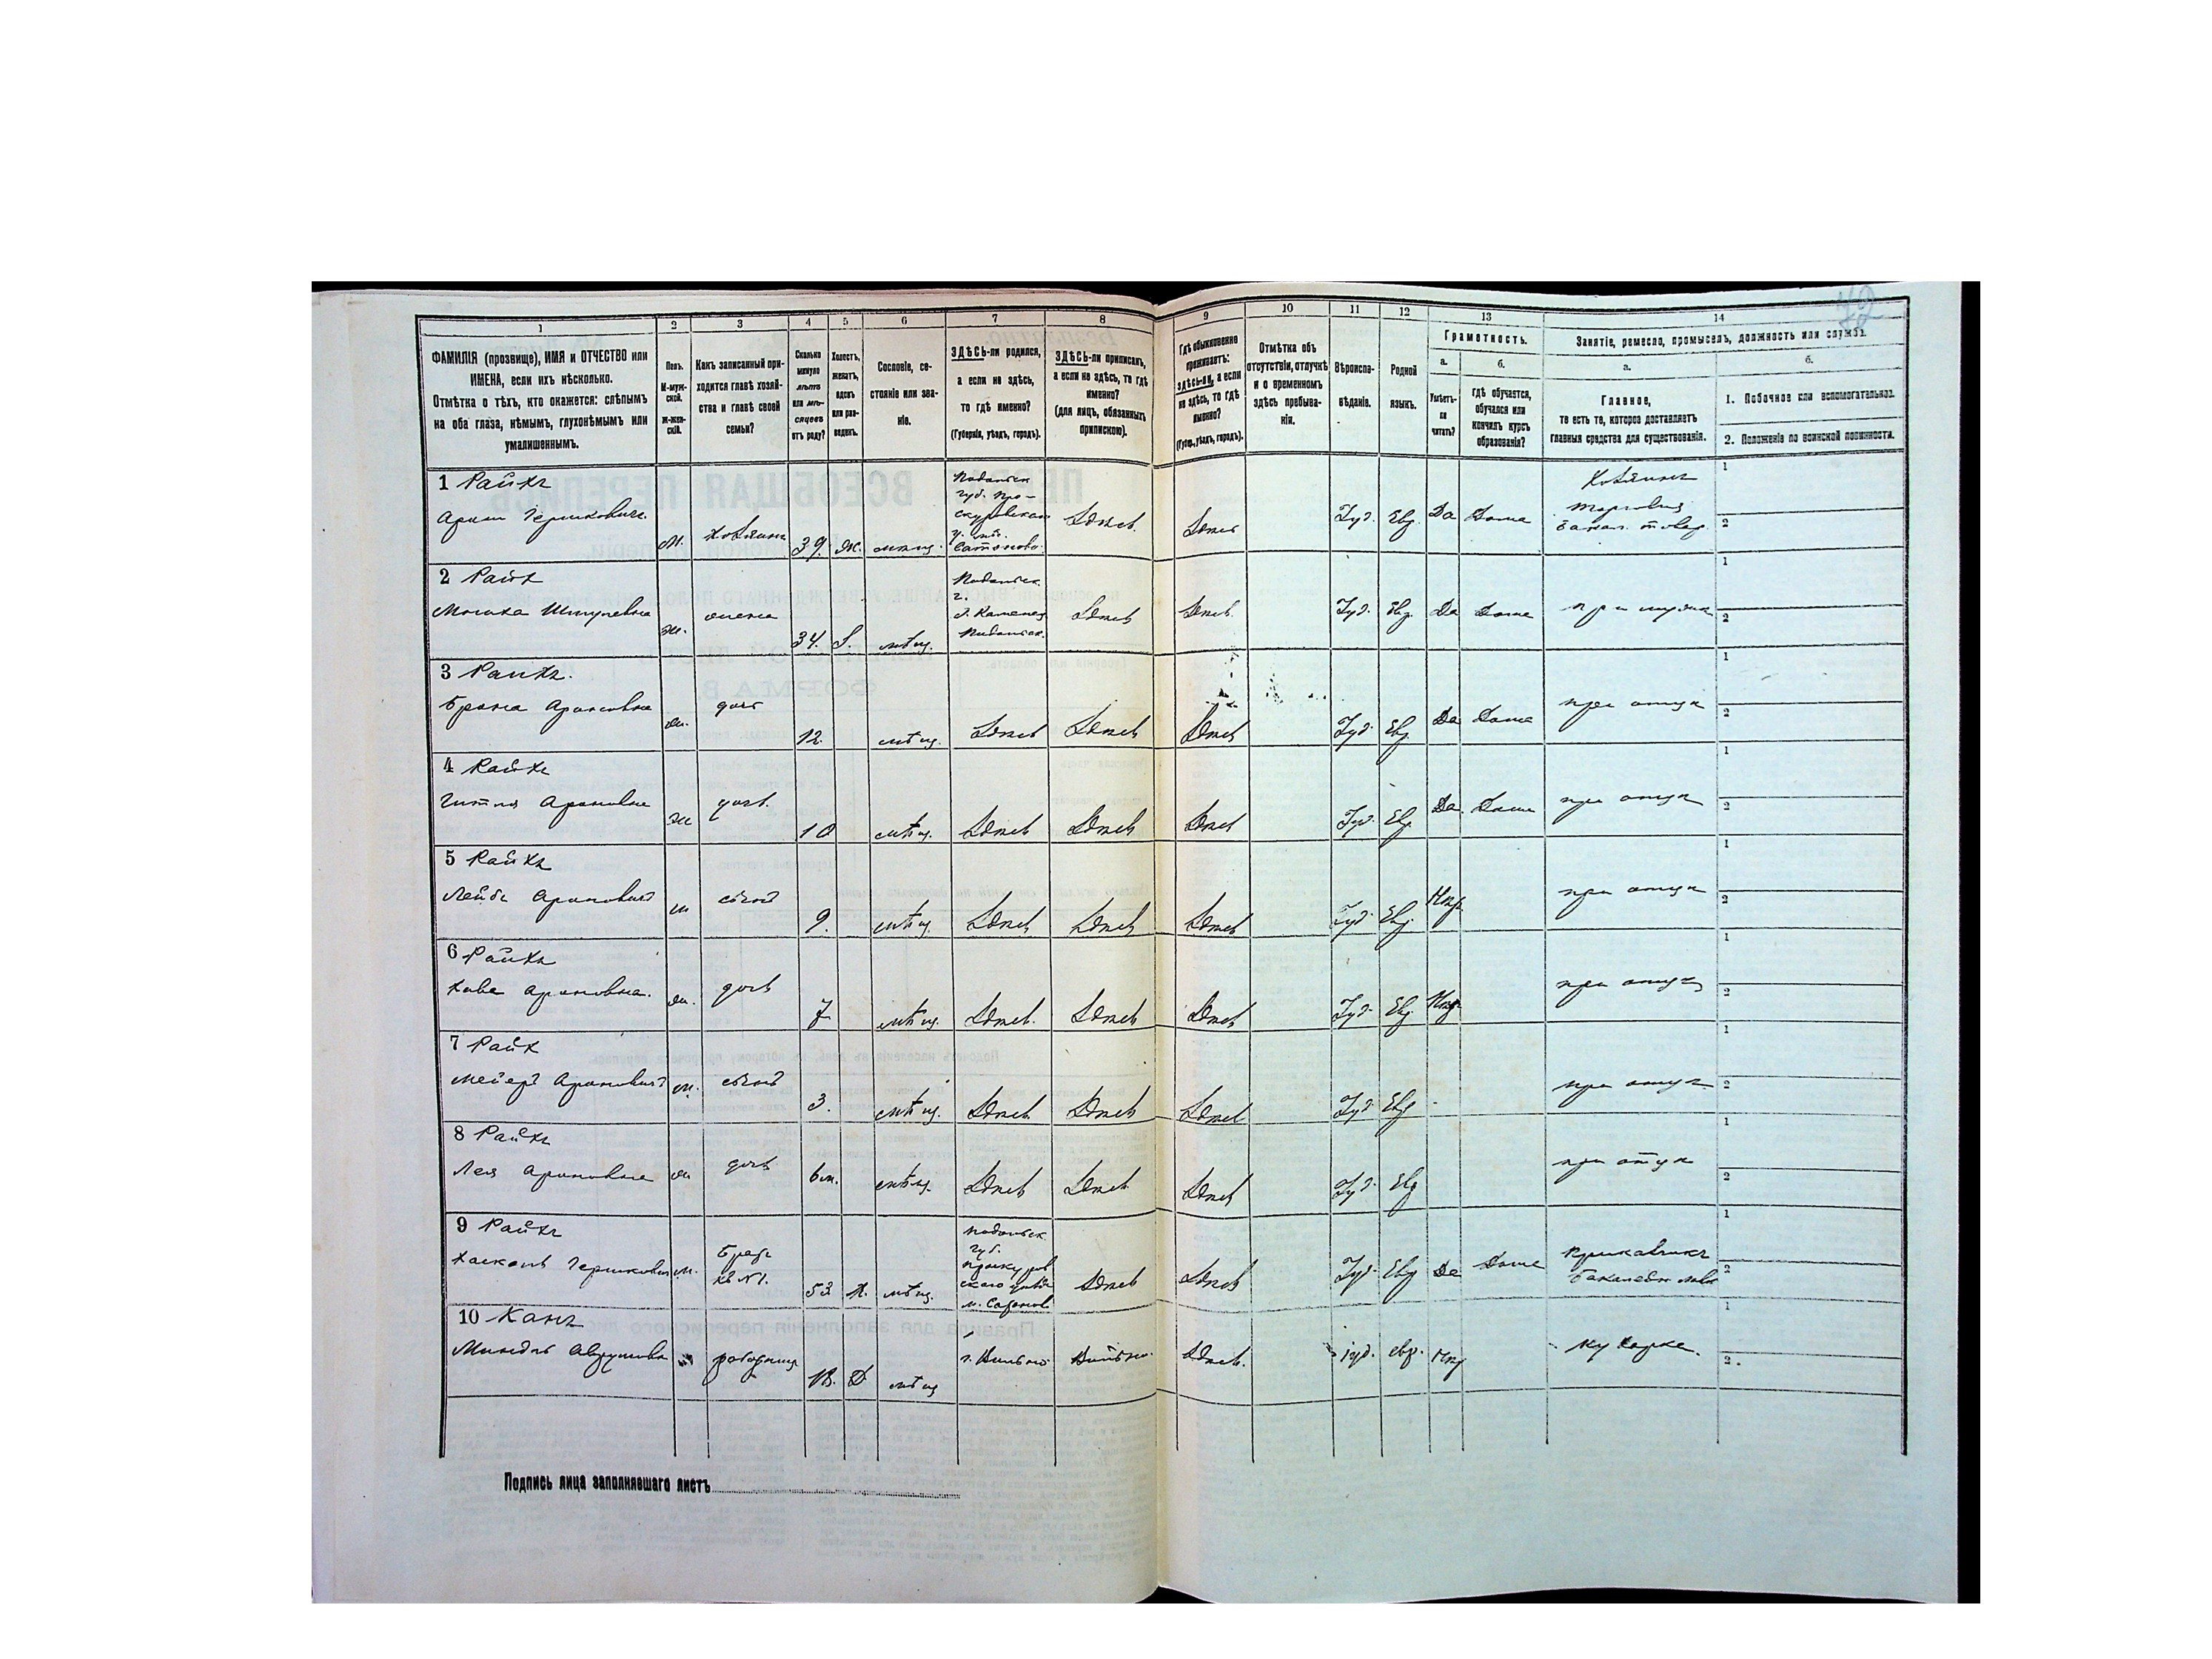 1 2 3 4 5 6 7 8 9 10 11 12 13 14
ФАМИЛІЯ (прозвище), ИМЯ и ОТЧЕСТВО или
ИМЕНА, если ихъ нѣсколько.
Отмѣтка о тѣхъ, кто окажется: слѣпымъ
на оба глаза, нѣмымъ, глухонѣмымъ или
умалишеннымъ.
Полъ.
М-муж-
ской.
Ж-жен-
скій.
Какъ записанный при-
ходится главѣ хозяй-
ства и главѣ своей
семьи?
Сколько
минуло
лѣтъ
или мѣ-
сяцевъ
отъ роду?
Холостъ,
женатъ,
вдовъ
или раз-
веденъ.
Сословіе, со-
стояніе или зва-
ніе.
ЗДѢСЬ-ли родился,
а если не здѣсь,
то гдѣ именно?
(Губернія, уѣздъ, городъ).
ЗДѢСЬ-ли приписанъ,
а если не здѣсь, то гдѣ
именно?
(для лицъ, обязанныхъ
припискою).
Гдѣ обыкновенно
проживаетъ:
здѣсь-ли, а если
не здѣсь, то гдѣ
именно?
(Губер., уѣздъ, городъ).
Отмѣтка объ
отсутствіи, отлучкѣ
и о временномъ
здѣсь пребыва-
ніи.
Вѣроиспо-
вѣданіе.
Родной
языкъ.
Грамотность.
а.
Умѣетъ-
ли
читать?
б.
гдѣ обучается,
обучался или
кончилъ курсъ
образованія?
Занятіе, ремесло, промыселъ, должность или служба.
а.
Главное,
то есть то, которое доставляетъ
главныя средства для существованія.
б.
1. Побочное или вспомогательное.
2. Положеніе по воинской повинности.
1 Райхъ
Аронъ Гершковичъ
М. Хозяинъ 39 Ж. мѣщ.
Подольск.
губ. Про-
скуровскаго
у. м.
Сатаново
Здѣсь Здѣсь Іуд. Евр. Да Дома
Хозяинъ
торговля
бакал. товар.
1
2
2 Райх
ж. жена 34 З. мѣщ.
Подольск.
г.
г. Каменец
Подольск.
Здѣсь Здѣсь Іуд. Евр. Да Дома при мужѣ
1
2
3 Райхъ.
Ароновна ж. дочь 12 мѣщ. Здѣсь Здѣсь Здѣсь Іуд. Евр. Да Дома при отцѣ
1
2
4 Райхъ
Гитля Ароновна ж дочь 10 мѣщ. Здѣсь Здѣсь Здѣсь Іуд. Евр. Да Дома при отцѣ
1
2
5 Райхъ
Лейбъ Ароновичъ м сынъ 9. мѣщ. Здѣсь Здѣсь Здѣсь Іуд. Евр. при отцѣ
1
2
6 Райхъ
Хава Ароновна. ж. дочь 7 мѣщ. Здѣсь. Здѣсь Здѣсь Іуд. Евр. при отцѣ
1
2
7 Райх
Мейеръ Ароновичъ м. сынъ 3. мѣщ. Здѣсь Здѣсь Здѣсь Іуд. Евр при отцѣ
1
2
8 Райхъ
Лея Ароновна ж дочь 6 м. мѣщ. Здѣсь Здѣсь Здѣсь Іуд. Евр при отцѣ
1
2
9 Райхъ
Гершкович м. Братъ
къ №1. 53 мѣщ.
Подольск.
губ.
Проскуров
скаго уѣзд
м. Сатанов
Здѣсь Здѣсь Іуд. Евр Да Дома
Прикащикъ
1
2
10 Канъ
работница 18. Д мѣщ г. Вильно Вильно. Здѣсь. іуд. евр. кухарка.
1
2
Подпись лица заполнявшаго листъ